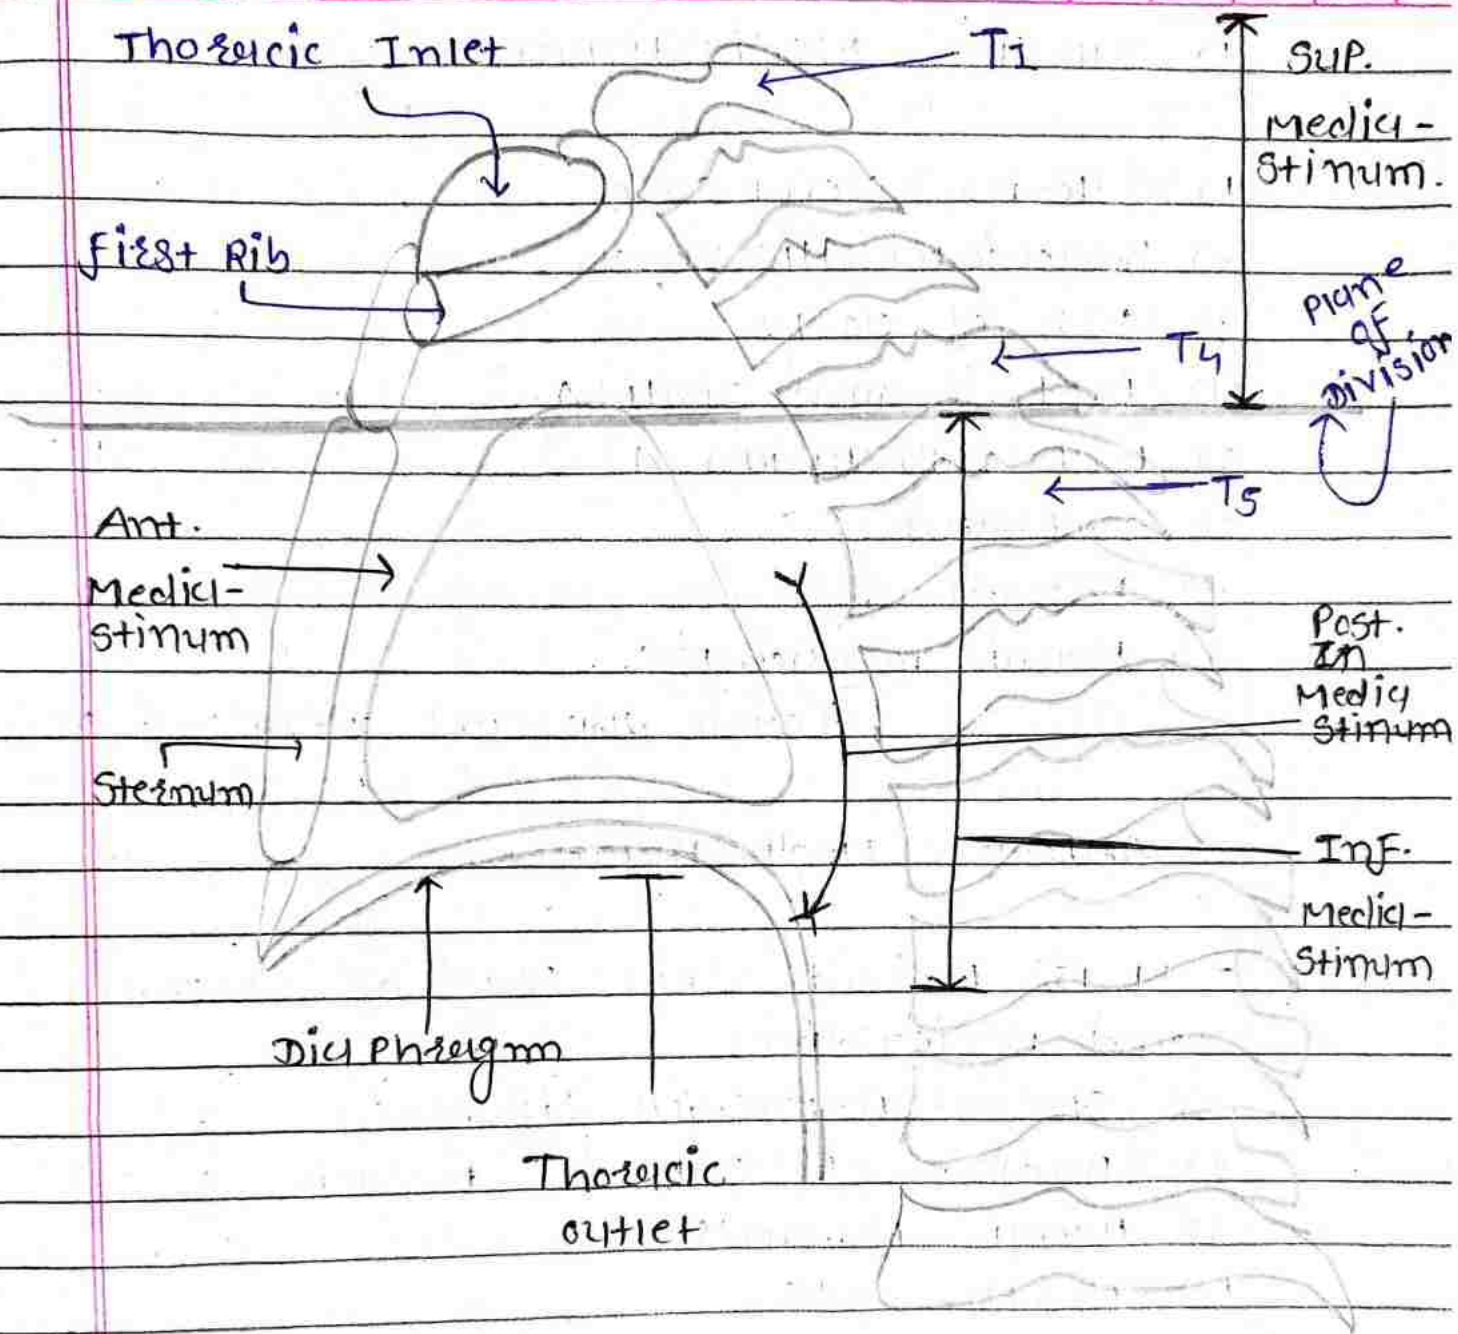 Thoracic Inlet
T1
Sup.
Media-
stinum.
First Rib
Plane
of
Division
T4
T5
Ant.
Media-
stinum
Post.
Media
stinum
Sternum
Inf.
Media-
stinum
Diaphragm
Thoracic
outlet